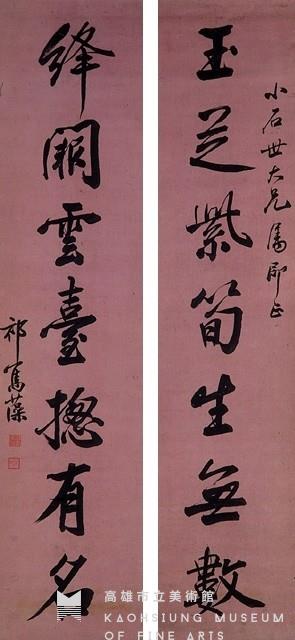 小石世大兄屬即正
玉芝紫筍生無數
絳闕雲臺摠有名
祁寯藻
高雄市立美術館
KAOHSIUNG MUSEUM
OF FINE ARTS